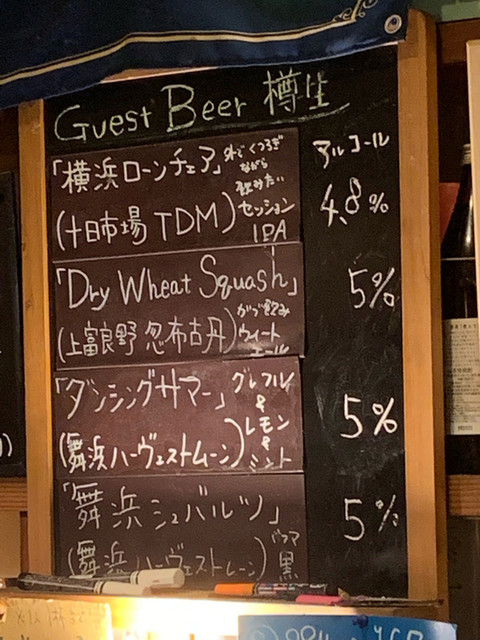 Guest Beer 樽生
アルコール
「横浜ローンチェア」
外でくつろぎ
ながら
飲みたい
セッション
IPA
(十日市場 TDM)
4.8%
「Dry Wheat Squash」
(上富良野 忽布古丹)
がぶ飲み
ウィート
エール
5%
「ダンシングサマー」
グレフル
&
レモン
&
ミント
(舞浜ハーヴェストムーン)
5%
「舞浜シュバルツ」
(舞浜ハーヴェストムーン)
黒
5%